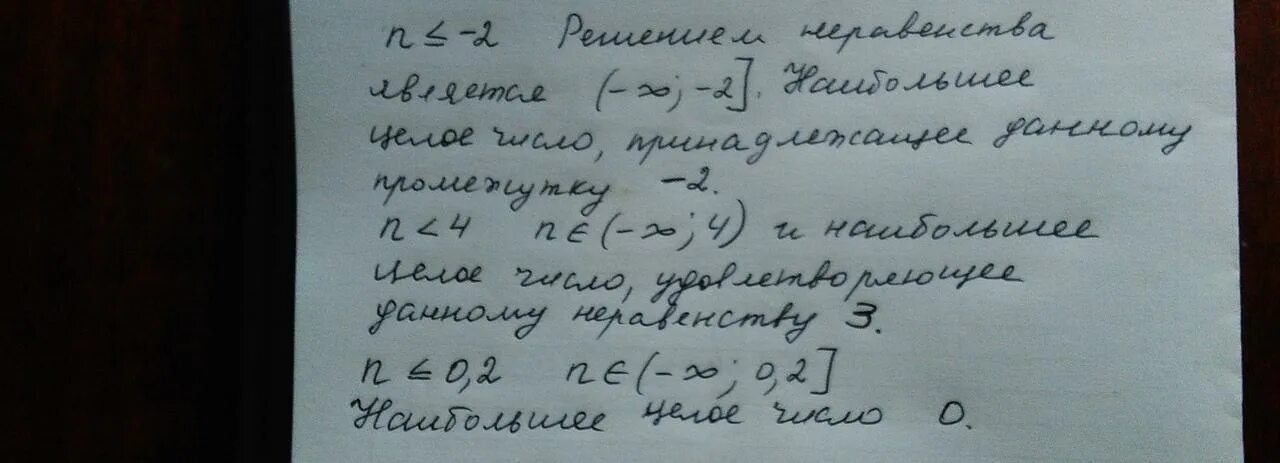 n ≤ -2 Решением неравенства
является (-∞; -2]. Наибольшее
целое число, принадлежащее данному
промежутку -2.
n < 4 n ∈ (-∞; 4) и наибольшее
целое число, удовлетворяющее
данному неравенству 3.
n ≤ 0,2 n ∈ (-∞; 0,2]
Наибольшее целое число 0.